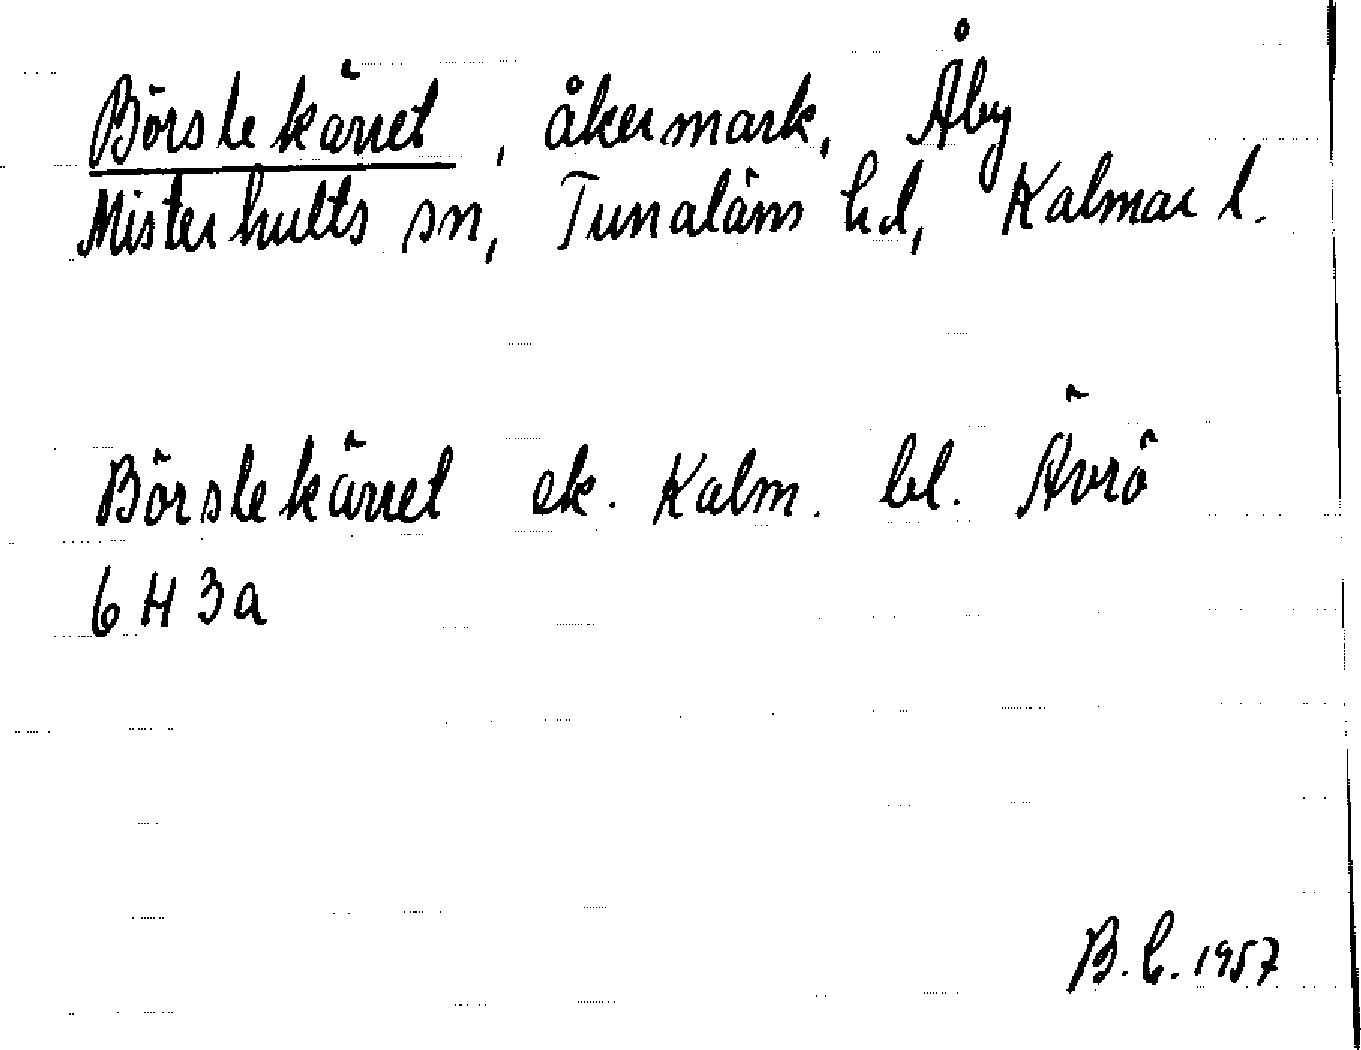 Börstekärret, åkermark, Åby
Misterhults sn, Tunaläns hd, Kalmar l.
Börstekärret ek. Kalm. bl. Ävrö
6 H 3a
B. C. 1957